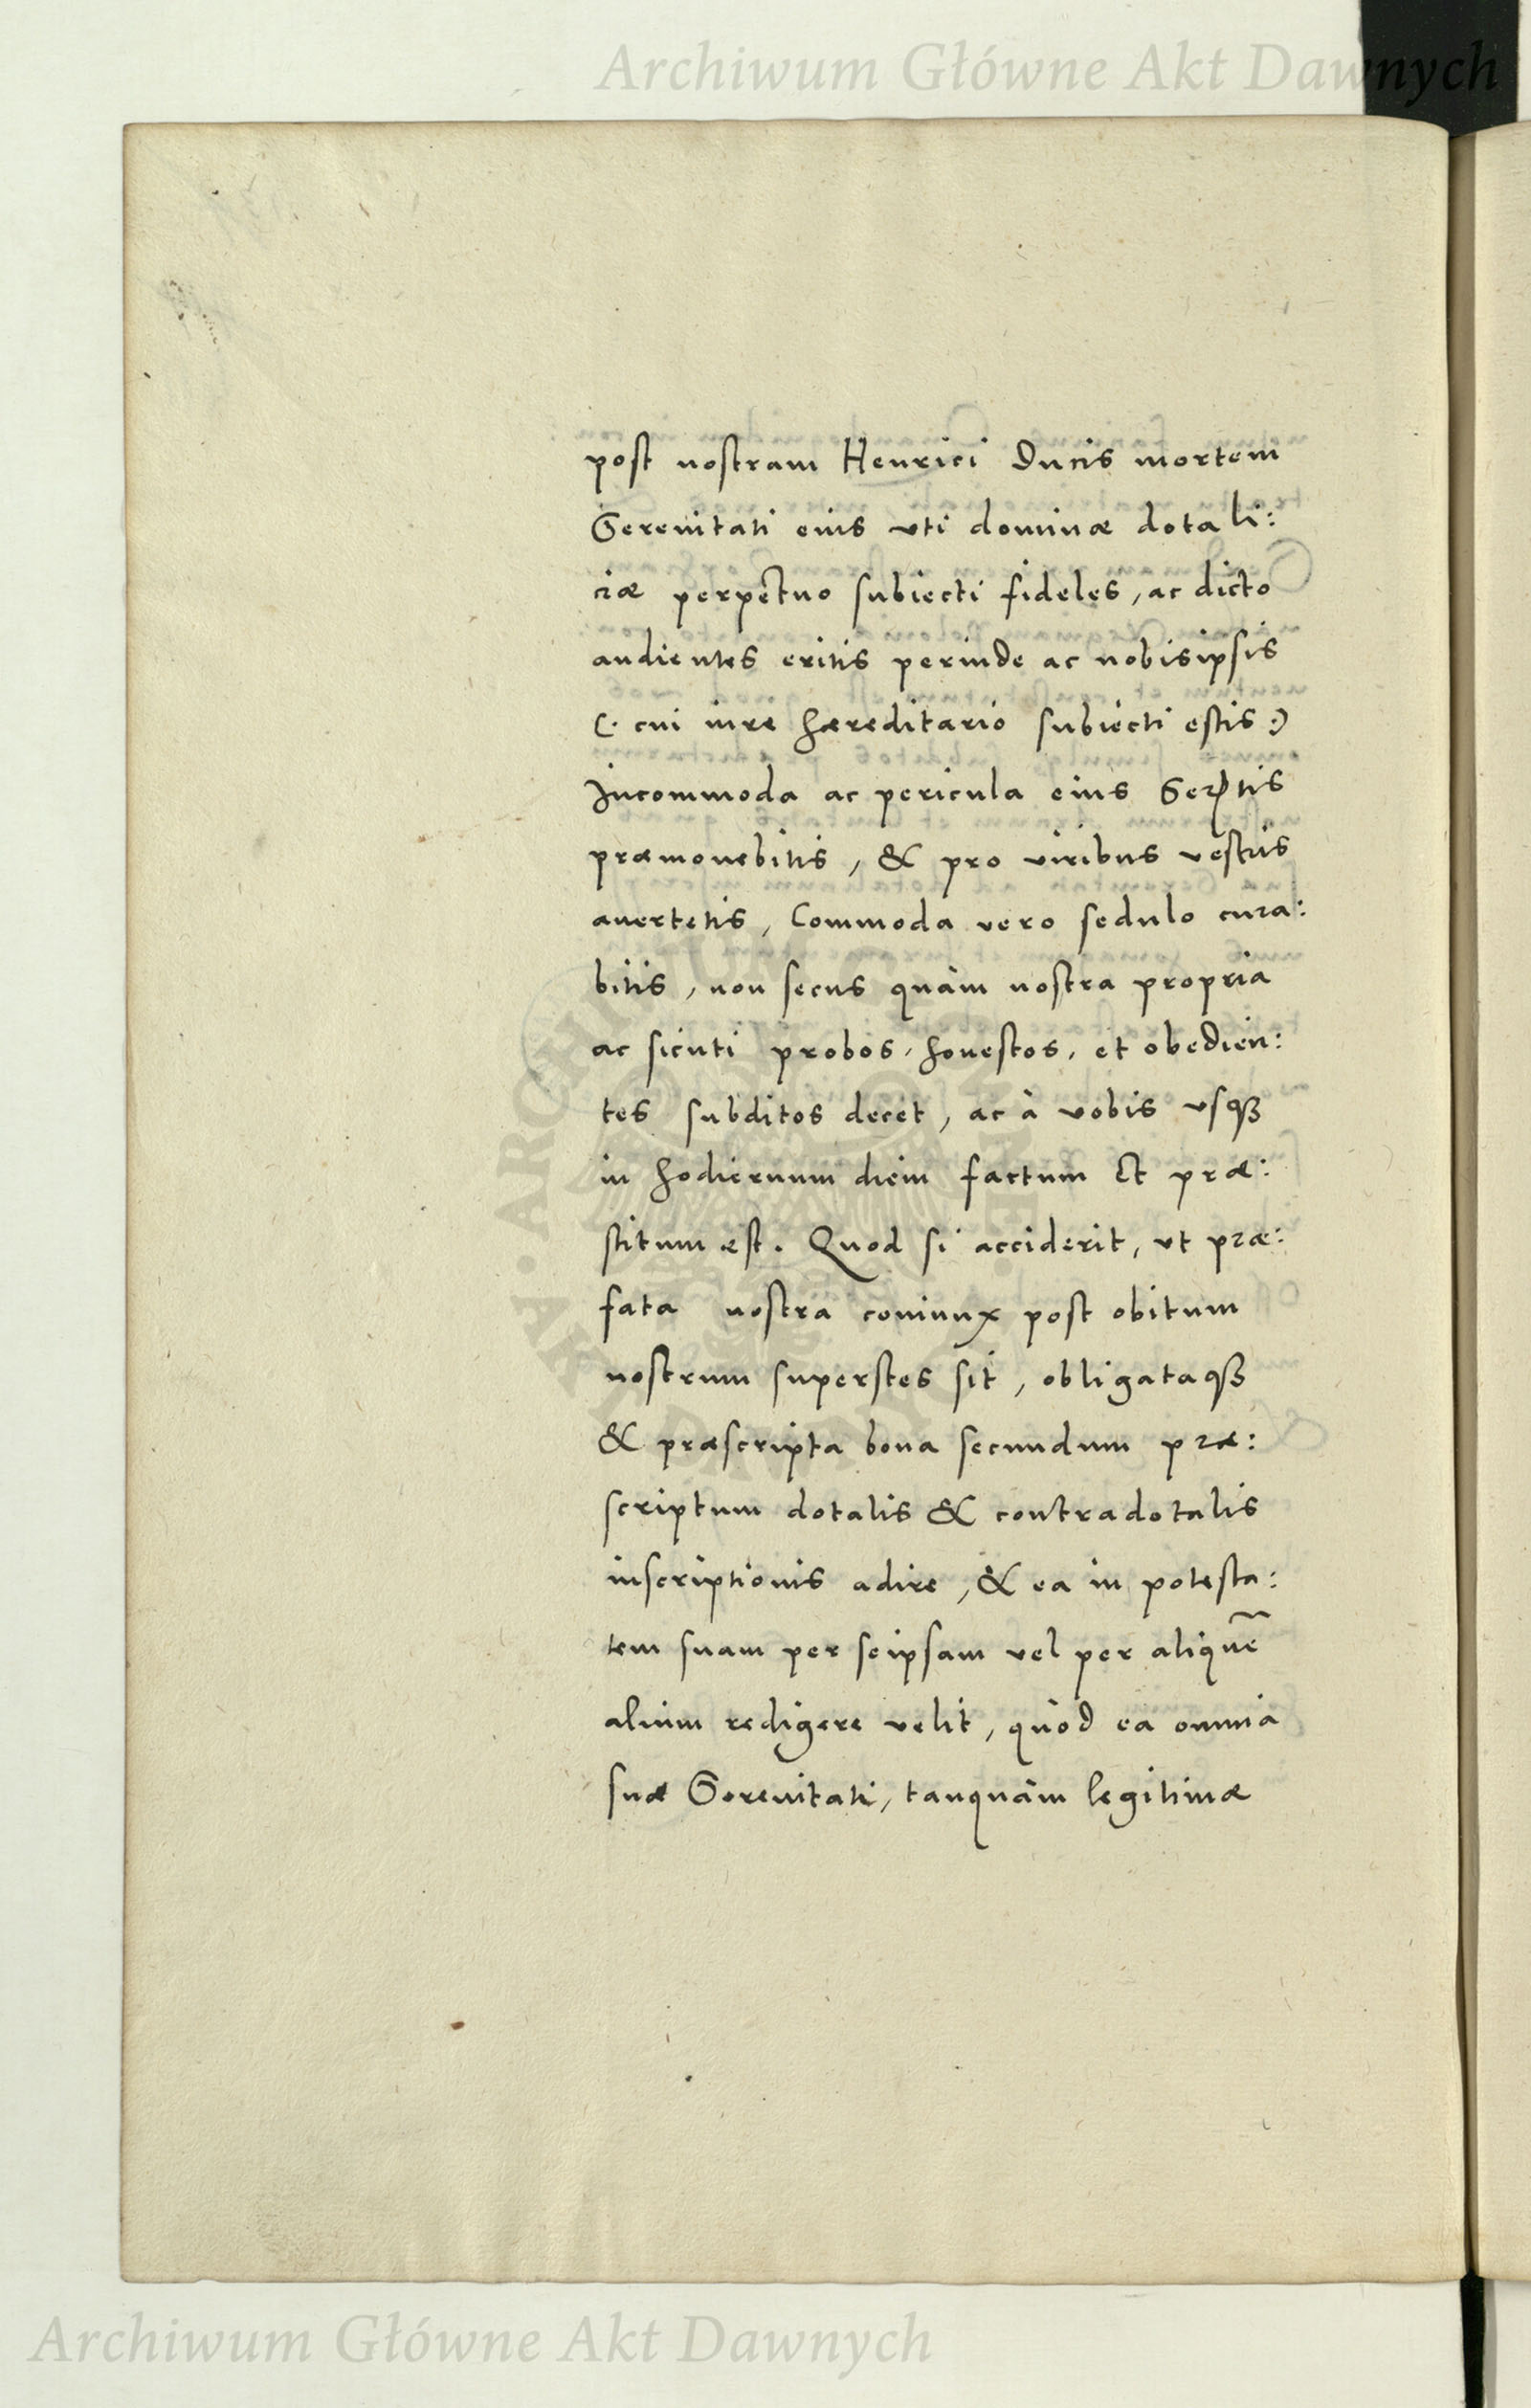 Archiwum Główne Akt Dawnych
post nostram Henrici Ducis mortem
Serenitati eius vti dominæ dotali:
ciæ perpetuo subiecti fideles, ac dicto
audientes eritis perinde ac nobisipsis
(: cui iure hæreditario subiecti estis :)
Incommoda ac pericula eius Sertis
præmonebitis, & pro viribus vestris
auertetis, Commoda vero sedulo cura:
bitis, non secus quàm nostra propria
ac sicuti probos, honestos, et obedien:
tes subditos decet, ac à vobis vsq3
in hodiernum diem factum et præ:
stitum est. Quod si acciderit, vt præ:
fata nostra coniunx post obitum
nostrum superstes sit, obligataq3
& præscripta bona secundum præ:
scriptum dotalis & contradotalis
inscriptionis adire, & ea in potesta:
tem suam per seipsam vel per aliquẽ
alium redigere velit, quòd ea omnia
suæ Serenitati, tanquàm legitimæ
ARCHIWUM GŁÓWNE AKT DAWNYCH
Archiwum Główne Akt Dawnych